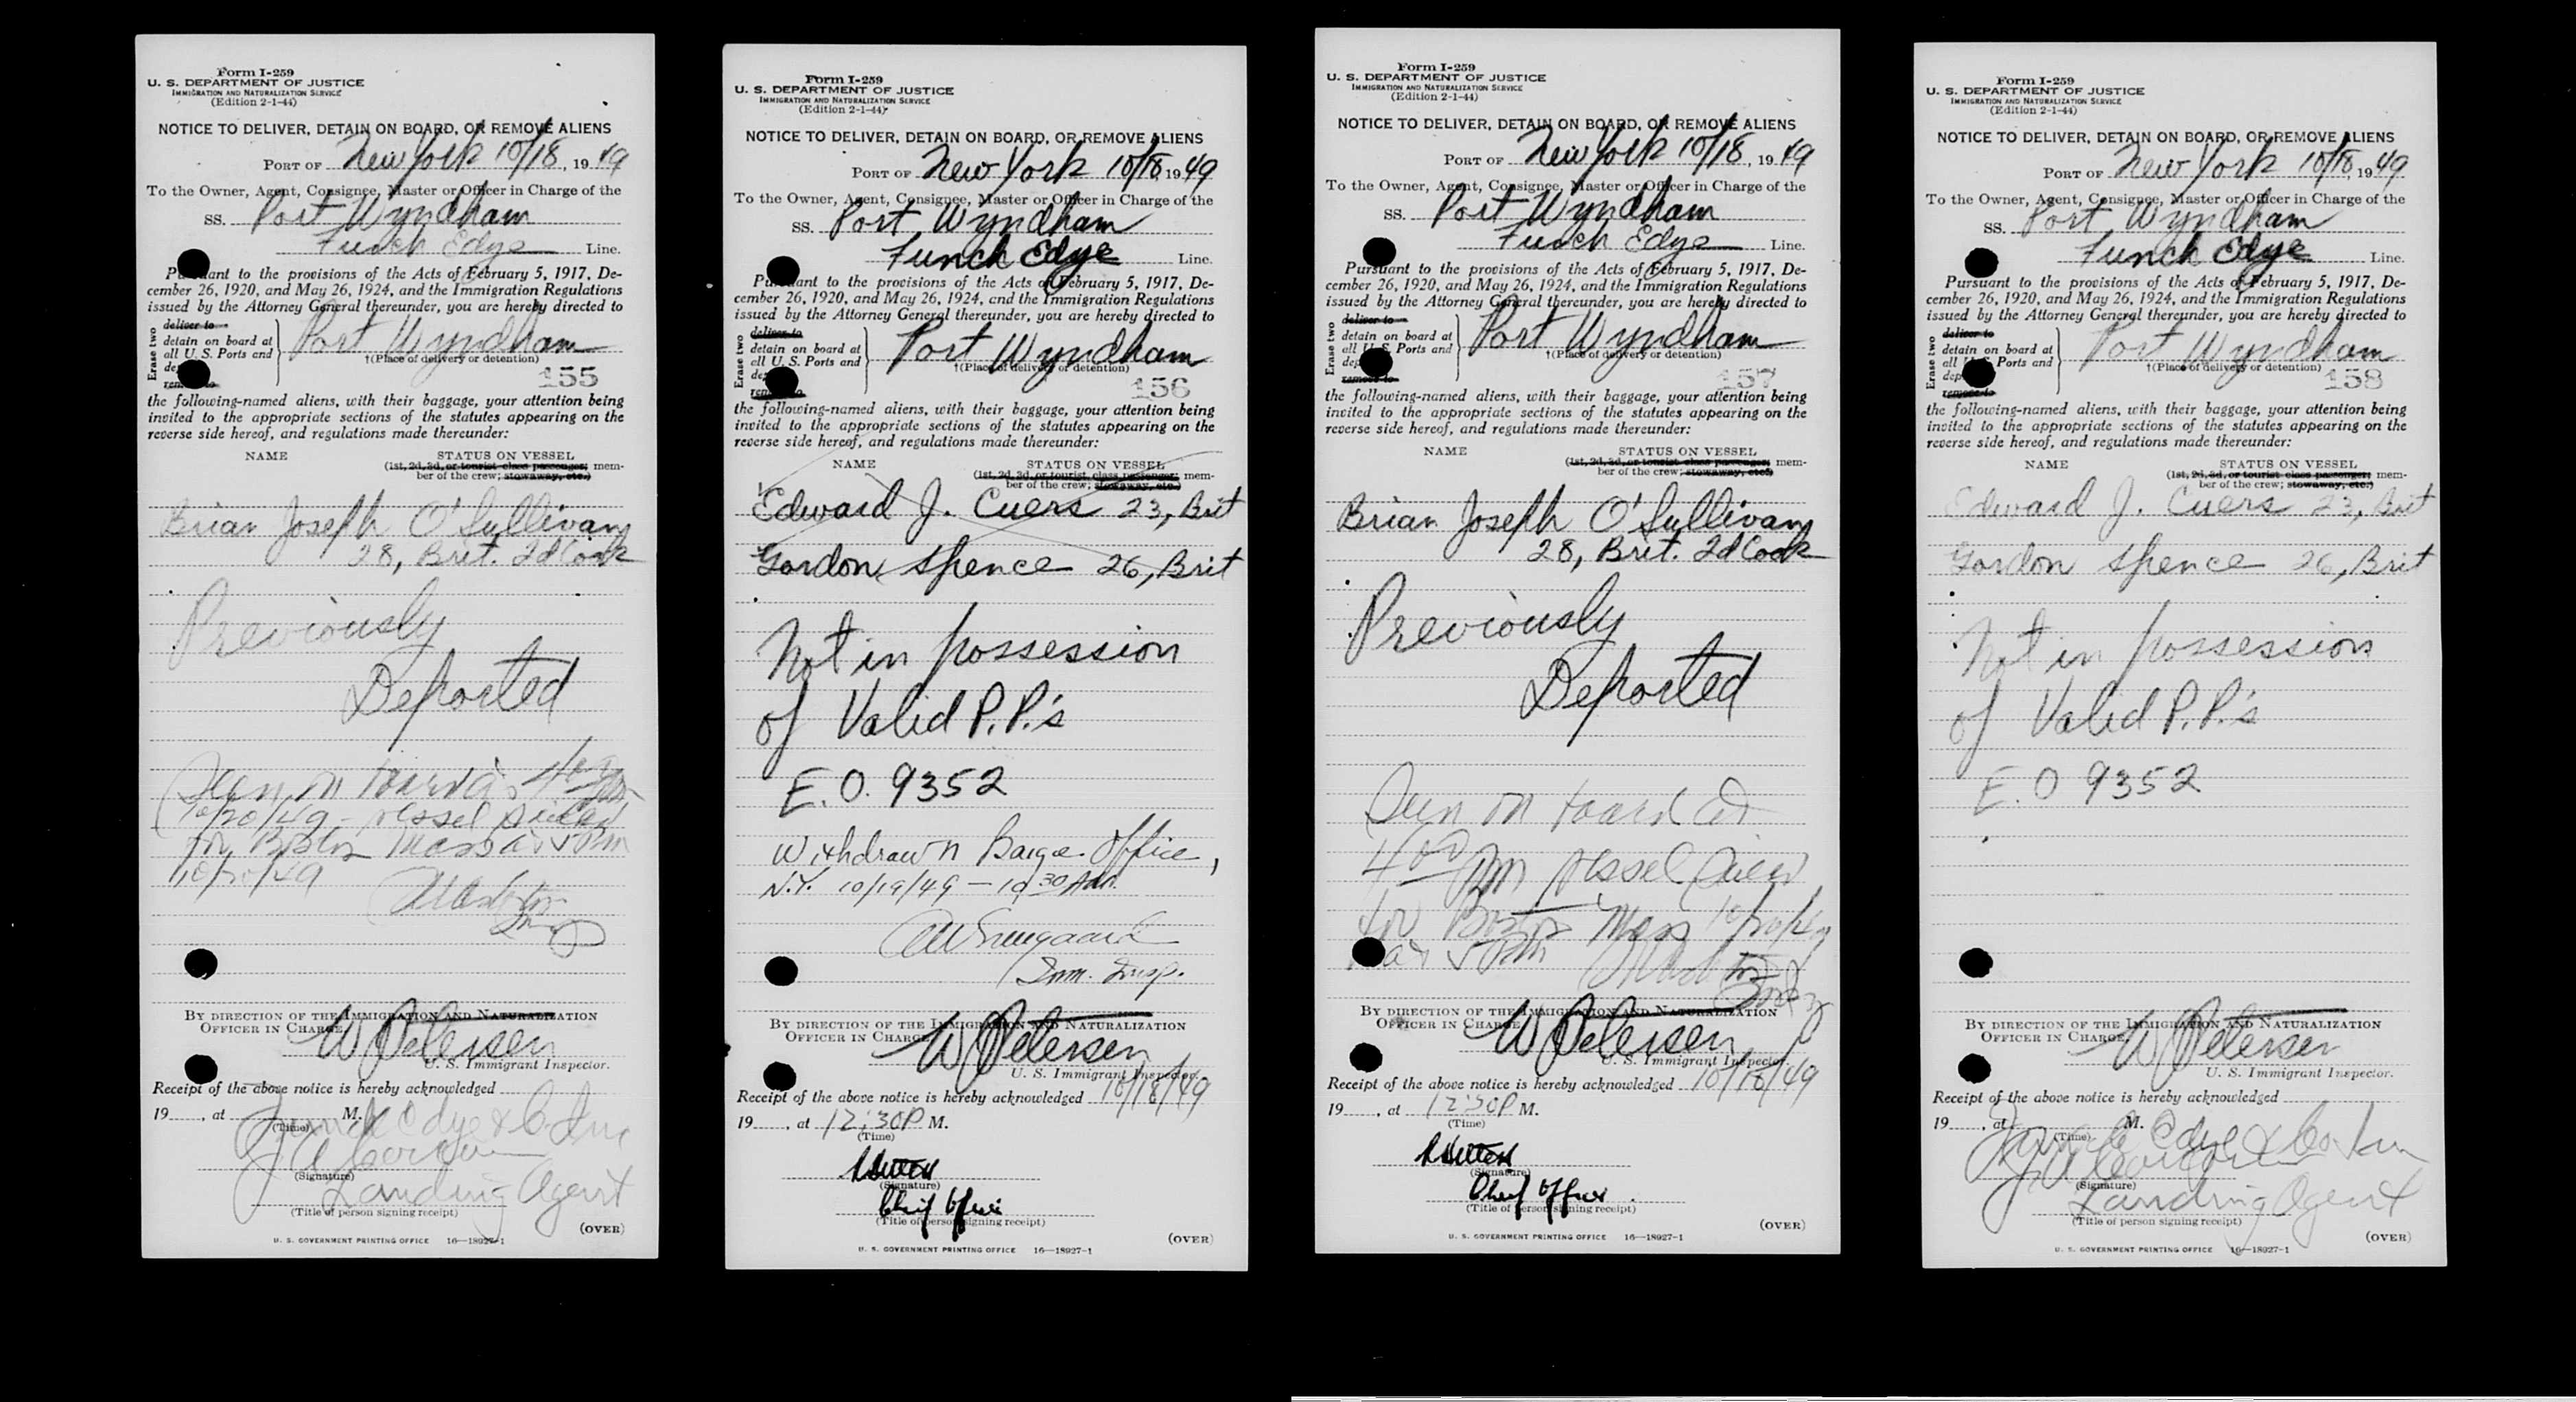 Form I-259
U. S. DEPARTMENT OF JUSTICE
IMMIGRATION AND NATURALIZATION SERVICE
(Edition 2-1-44)
NOTICE TO DELIVER, DETAIN ON BOARD, OR REMOVE ALIENS
PORT OF New York 10/18, 1949
To the Owner, Agent, Consignee, Master or Officer in Charge of the
SS. Port Wyndham
Funch Edye Line.
Pursuant to the provisions of the Acts of February 5, 1917, De-
cember 26, 1920, and May 26, 1924, and the Immigration Regulations
issued by the Attorney General thereunder, you are hereby directed to
Erase two
deliver to
detain on board at
all U. S. Ports and
remove to
Port Wyndham
†(Place of delivery or detention)
155
the following-named aliens, with their baggage, your attention being
invited to the appropriate sections of the statutes appearing on the
reverse side hereof, and regulations made thereunder:
NAME STATUS ON VESSEL
(1st, 2d, 3d, or tourist class passenger; mem-
ber of the crew; stowaway, etc.)
Brian Joseph O'Sullivan
28, Brit. 2d Cook
Previously
Deported
Seen on board at 4 00 pm
10/20/49 - vessel sailed
for Boston Mass at 5 PM
10/20/49
BY DIRECTION OF THE IMMIGRATION AND NATURALIZATION
OFFICER IN CHARGE
W Petersen
U. S. Immigrant Inspector.
Receipt of the above notice is hereby acknowledged
19 , at M.
(Time)
Funch Edye & Co. Inc
(Signature)
Landing Agent
(Title of person signing receipt)
(OVER)
U. S. GOVERNMENT PRINTING OFFICE 16—18927-1
Form I-259
U. S. DEPARTMENT OF JUSTICE
IMMIGRATION AND NATURALIZATION SERVICE
(Edition 2-1-44)
NOTICE TO DELIVER, DETAIN ON BOARD, OR REMOVE ALIENS
PORT OF New York 10/18, 1949
To the Owner, Agent, Consignee, Master or Officer in Charge of the
SS. Port Wyndham
Funch Edye Line.
Pursuant to the provisions of the Acts of February 5, 1917, De-
cember 26, 1920, and May 26, 1924, and the Immigration Regulations
issued by the Attorney General thereunder, you are hereby directed to
Erase two
deliver to
detain on board at
all U. S. Ports and
remove to
Port Wyndham
†(Place of delivery or detention)
156
the following-named aliens, with their baggage, your attention being
invited to the appropriate sections of the statutes appearing on the
reverse side hereof, and regulations made thereunder:
NAME STATUS ON VESSEL
(1st, 2d, 3d, or tourist class passenger; mem-
ber of the crew; stowaway, etc.)
Edward J. Cuers 23, Brit
Gordon Spence 26, Brit
Not in possession
of Valid P.P.'s
E.O. 9352
Withdrawn Barge Office,
N.Y. 10/19/49 - 10 30 AM.
Imm. Insp.
BY DIRECTION OF THE IMMIGRATION AND NATURALIZATION
OFFICER IN CHARGE
W Petersen
U. S. Immigrant Inspector.
Receipt of the above notice is hereby acknowledged 10/18/49
19 , at 12:30P M.
(Time)
(Signature)
Chief Officer
(Title of person signing receipt)
(OVER)
U. S. GOVERNMENT PRINTING OFFICE 16—18927-1
Form I-259
U. S. DEPARTMENT OF JUSTICE
IMMIGRATION AND NATURALIZATION SERVICE
(Edition 2-1-44)
NOTICE TO DELIVER, DETAIN ON BOARD, OR REMOVE ALIENS
PORT OF New York 10/18, 1949
To the Owner, Agent, Consignee, Master or Officer in Charge of the
SS. Port Wyndham
Funch Edye Line.
Pursuant to the provisions of the Acts of February 5, 1917, De-
cember 26, 1920, and May 26, 1924, and the Immigration Regulations
issued by the Attorney General thereunder, you are hereby directed to
Erase two
deliver to
detain on board at
all U. S. Ports and
remove to
Port Wyndham
†(Place of delivery or detention)
157
the following-named aliens, with their baggage, your attention being
invited to the appropriate sections of the statutes appearing on the
reverse side hereof, and regulations made thereunder:
NAME STATUS ON VESSEL
(1st, 2d, 3d, or tourist class passenger; mem-
ber of the crew; stowaway, etc.)
Brian Joseph O'Sullivan
28, Brit. 2d Cook
Previously
Deported
Seen on board at
4 00 PM vessel sailed
for Boston Mass 10/20/49
at 5 PM
BY DIRECTION OF THE IMMIGRATION AND NATURALIZATION
OFFICER IN CHARGE
W Petersen
U. S. Immigrant Inspector.
Receipt of the above notice is hereby acknowledged 10/18/49
19 , at 12:30P M.
(Time)
(Signature)
Chief Officer
(Title of person signing receipt)
(OVER)
U. S. GOVERNMENT PRINTING OFFICE 16—18927-1
Form I-259
U. S. DEPARTMENT OF JUSTICE
IMMIGRATION AND NATURALIZATION SERVICE
(Edition 2-1-44)
NOTICE TO DELIVER, DETAIN ON BOARD, OR REMOVE ALIENS
PORT OF New York 10/18, 1949
To the Owner, Agent, Consignee, Master or Officer in Charge of the
SS. Port Wyndham
Funch Edye Line.
Pursuant to the provisions of the Acts of February 5, 1917, De-
cember 26, 1920, and May 26, 1924, and the Immigration Regulations
issued by the Attorney General thereunder, you are hereby directed to
Erase two
deliver to
detain on board at
all U. S. Ports and
remove to
Port Wyndham
†(Place of delivery or detention)
158
the following-named aliens, with their baggage, your attention being
invited to the appropriate sections of the statutes appearing on the
reverse side hereof, and regulations made thereunder:
NAME STATUS ON VESSEL
(1st, 2d, 3d, or tourist class passenger; mem-
ber of the crew; stowaway, etc.)
Edward J. Cuers 23, Brit
Gordon Spence 26, Brit
Not in possession
of Valid P.P.'s
E.O 9352
BY DIRECTION OF THE IMMIGRATION AND NATURALIZATION
OFFICER IN CHARGE
W Petersen
U. S. Immigrant Inspector.
Receipt of the above notice is hereby acknowledged
19 , at M.
(Time)
Funch Edye & Co. Inc
(Signature)
Landing Agent
(Title of person signing receipt)
(OVER)
U. S. GOVERNMENT PRINTING OFFICE 16—18927-1